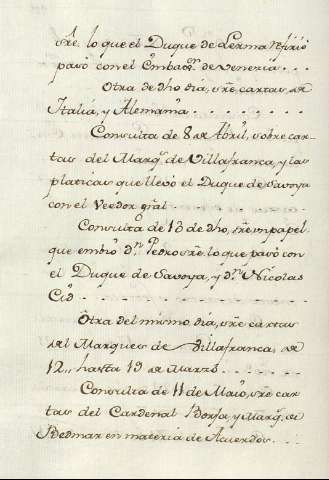 sre. lo que el Duque de Lerma refirio
pasó con el Embaor. de Venecia...
Otra de dho dia, sre cartas de
Italia, y Alemania.......
Consulta de 8 de Abril, sobre car-
tas del Marqs. de Villafranca, y las
platicas que llevó el Duque de Savoya
con el Veedor gral..........
Consulta de 10 de dho, sre un papel
que embió Dn. Pedro sre. lo que pasó con
el Duque de Savoya, y Dn. Nicolas
Cid................
Otra del mismo dia, sre cartas
del Marques de Villafranca, de
12,, hasta 19 de Marzo.....
Consulta de 11 de Maio, sre car-
tas del Cardenal Borja, y Marqs. de
Bedmar en materia de Acuerdos...